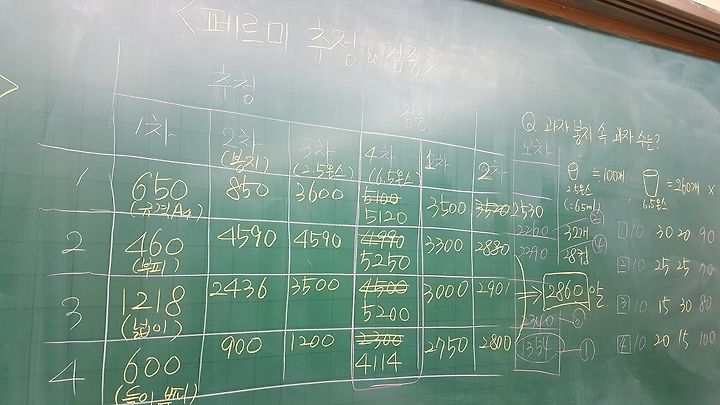 <페르미 추정 & 검증>
추정
실중
1차 2차 3차 4차 1차 2차 오차
(봉지) (2.5온스) (6.5온스)
1 650 850 3600 5100 3500 3520 2530
(규격A4) 5120
2 460 4590 4590 4990 3300 2880 2200
(부피) 5250 2390
3 1218 2436 3500 4500 3000 2901
(넓이) 5200 2340 ②
4 600 900 1200 2300 2750 2800 1354 ①
4114
Q. 과자 봉지 속 과자 수는?
=100개, =260개 ×
2.5온스 6.5온스
(=65ml)
32개
28컵
⇒ 2860 알
1 10 30 20 90
2 10 25 25 70
3 10 15 30 80
4 10 20 15 100